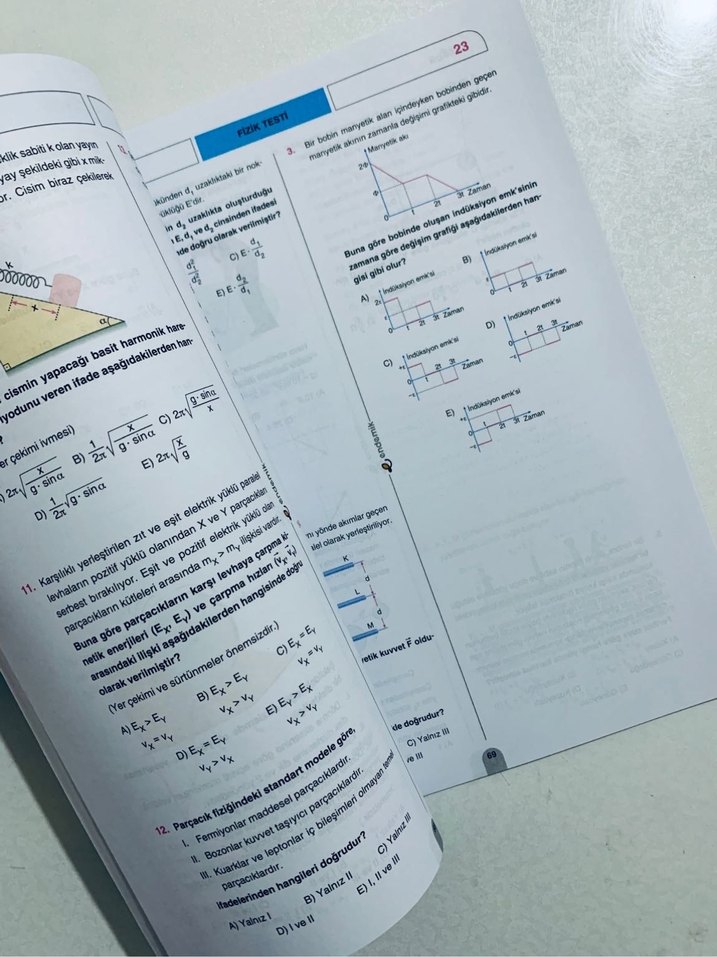 klik sabiti k olan yayın
yay şekildeki gibi x mik-
or. Cisim biraz çekilerek
x
α
cismin yapacağı basit harmonik hare-
iyodunu veren ifade aşağıdakilerden han-
?
er çekimi ivmesi)
) 2π√(x / g · sinα)
B) 1/2π √(x / g · sinα)
C) 2π√(g · sinα / x)
D) 1/2π √(g · sinα)
E) 2π√(x / g)
11. Karşılıklı yerleştirilen zıt ve eşit elektrik yüklü paralel
levhaların pozitif yüklü olanından X ve Y parçacıkları
serbest bırakılıyor. Eşit ve pozitif elektrik yüklü olan
parçacıkların kütleleri arasında mX > mY ilişkisi vardır.
Buna göre parçacıkların karşı levhaya çarpma ki-
netik enerjileri (EX, EY) ve çarpma hızları (vX, vY)
arasındaki ilişki aşağıdakilerden hangisinde doğru
olarak verilmiştir?
(Yer çekimi ve sürtünmeler önemsizdir.)
A) EX > EY
vX = vY
B) EX > EY
vX > vY
C) EX = EY
vX = vY
D) EX = EY
vY > vX
E) EY > EX
vX > vY
12. Parçacık fiziğindeki standart modele göre,
I. Fermiyonlar maddesel parçacıklardır.
II. Bozonlar kuvvet taşıyıcı parçacıklardır.
III. Kuarklar ve leptonlar iç bileşimleri olmayan temel
parçacıklardır.
ifadelerinden hangileri doğrudur?
A) Yalnız I
B) Yalnız II
C) Yalnız III
D) I ve II
E) I, II ve III
FİZİK TESTİ
23
ükünden d1 uzaklıktaki bir nok-
üklüğü E'dir.
in d2 uzaklıkta oluşturduğu
E, d1 ve d2 cinsinden ifadesi
de doğru olarak verilmiştir?
d1²/d2²
C) E · d1/d2
E) E · d2/d1
nı yönde akımlar geçen
alel olarak yerleştiriliyor.
K
d
L
d
M
etik kuvvet F oldu-
de doğrudur?
C) Yalnız III
ve III
3. Bir bobin manyetik alan içindeyken bobinden geçen
manyetik akının zamanla değişimi grafikteki gibidir.
Manyetik akı
2Φ
Φ
0 t 2t 3t Zaman
Buna göre bobinde oluşan indüksiyon emk'sinin
zamana göre değişim grafiği aşağıdakilerden han-
gisi gibi olur?
A) İndüksiyon emk'si
0 t 2t 3t Zaman
B) İndüksiyon emk'si
0 t 2t 3t Zaman
C) İndüksiyon emk'si
0 t 2t 3t Zaman
D) İndüksiyon emk'si
0 t 2t 3t Zaman
E) İndüksiyon emk'si
0 t 2t 3t Zaman
endemik
69